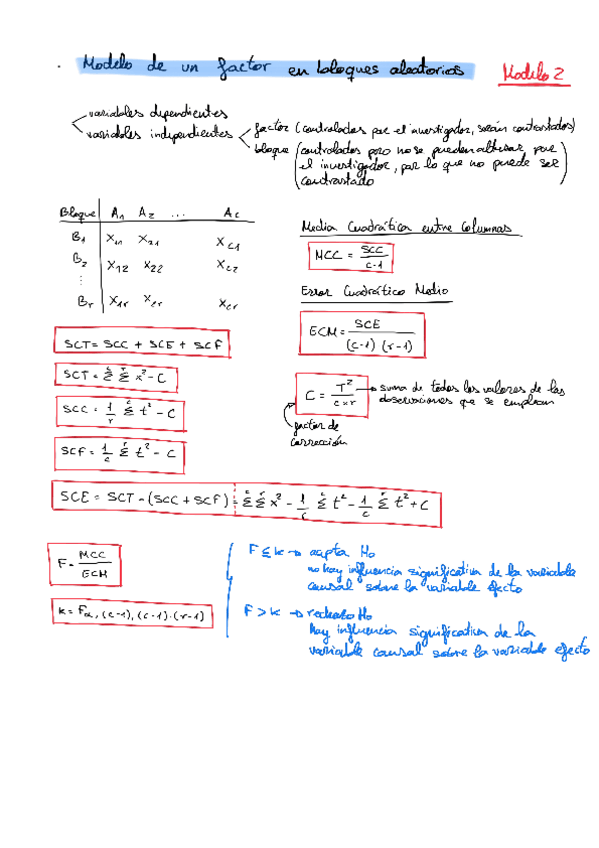 . Modelo de un factor en bloques aleatorios Modelo 2
variables dependientes
variables independientes
factor (controladas por el investigador, serán contrastados)
bloque (controlados pero no se pueden alterar por
el investigador, por lo que no puede ser
contrastado)
Bloque A1 A2 ... Ac
B1 X11 X21 Xc1
B2 X12 X22 Xc2
⋮
Br X1r X2r Xcr
Media Cuadrática entre Columnas
MCC = SCC / c-1
Error Cuadrático Medio
ECM = SCE / (c-1) (r-1)
SCT = SCC + SCE + SCF
SCT = Σ^c Σ^r x² - C
SCC = 1/r Σ^c t² - C
SCF = 1/c Σ^r t² - C
C = T² / c×r → suma de todos los valores de las
observaciones que se emplean
factor de
corrección
SCE = SCT - (SCC + SCF) = Σ^c Σ^r x² - 1/c Σ^c t² - 1/c Σ^r t² + C
F = MCC / ECM
K = Fα, (c-1), (c-1)·(r-1)
F ≤ K → acepta H0
no hay influencia significativa de la variable
causal sobre la variable efecto
F > K → rechazo H0
hay influencia significativa de la
variable causal sobre la variable efecto